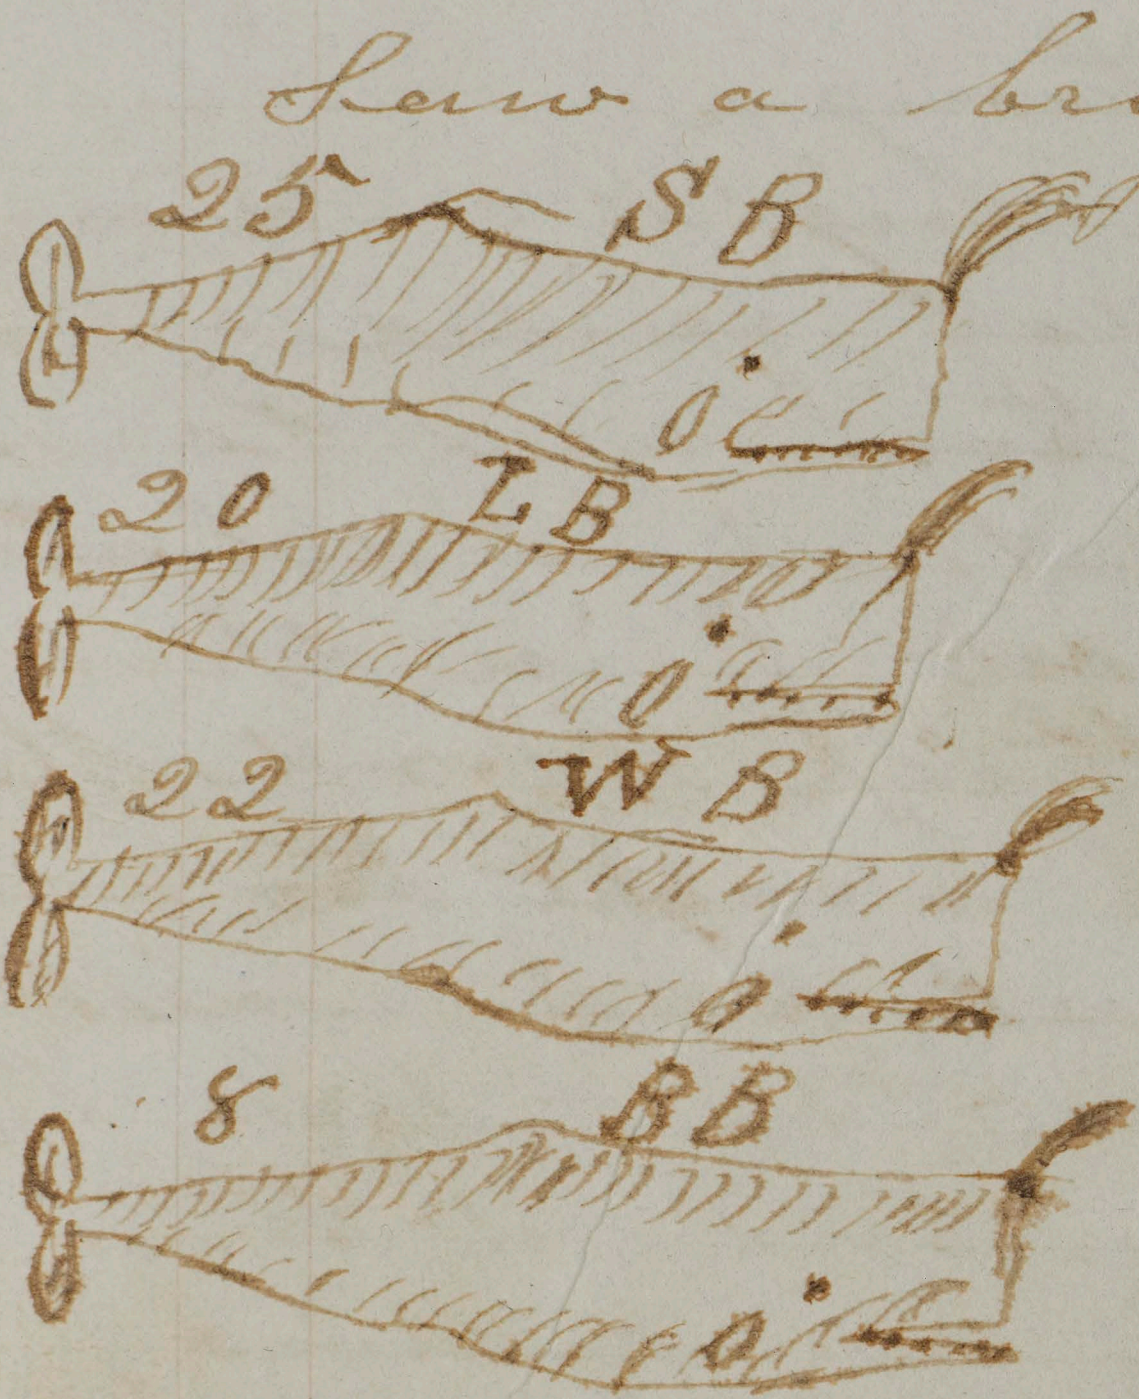 Saw a
25 S B
20 L B
22 W B
8 B B